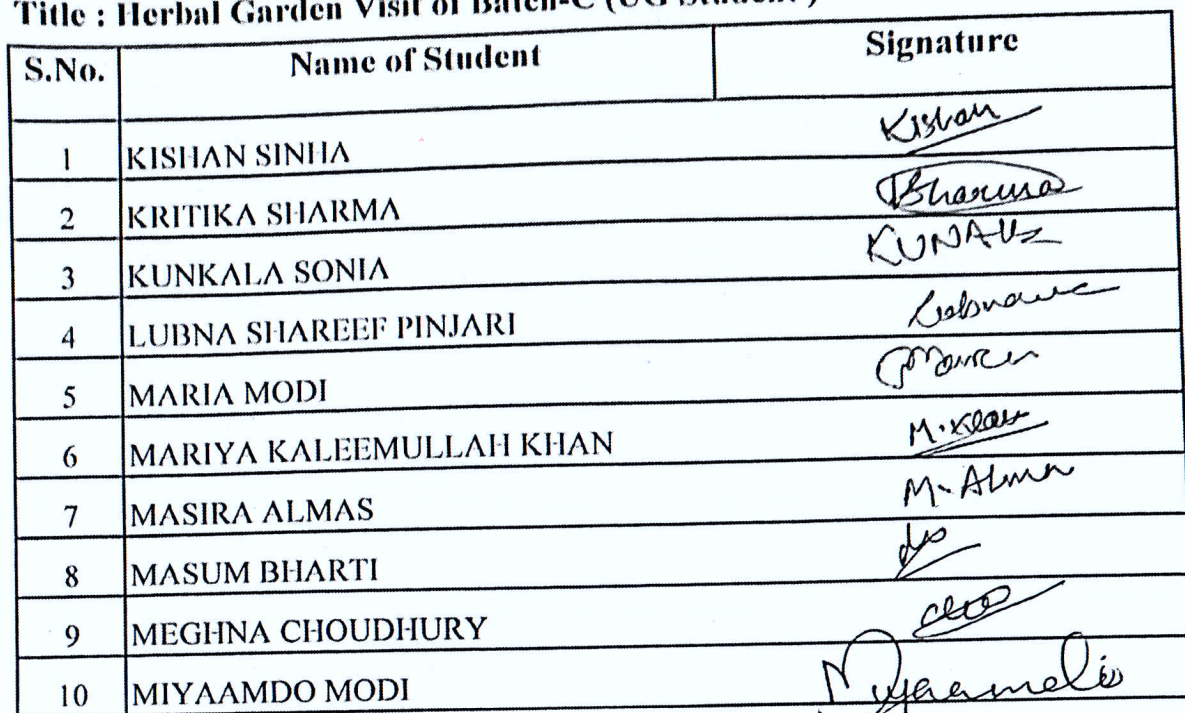 Title : Herbal Garden Visit of Batch-C (UG Student )
S.No. Name of Student Signature
1 KISHAN SINHA Kishan
2 KRITIKA SHARMA Sharma
3 KUNKALA SONIA
4 LUBNA SHAREEF PINJARI
5 MARIA MODI
6 MARIYA KALEEMULLAH KHAN M.
7 MASIRA ALMAS M.
8 MASUM BHARTI
9 MEGHNA CHOUDHURY
10 MIYAAMDO MODI